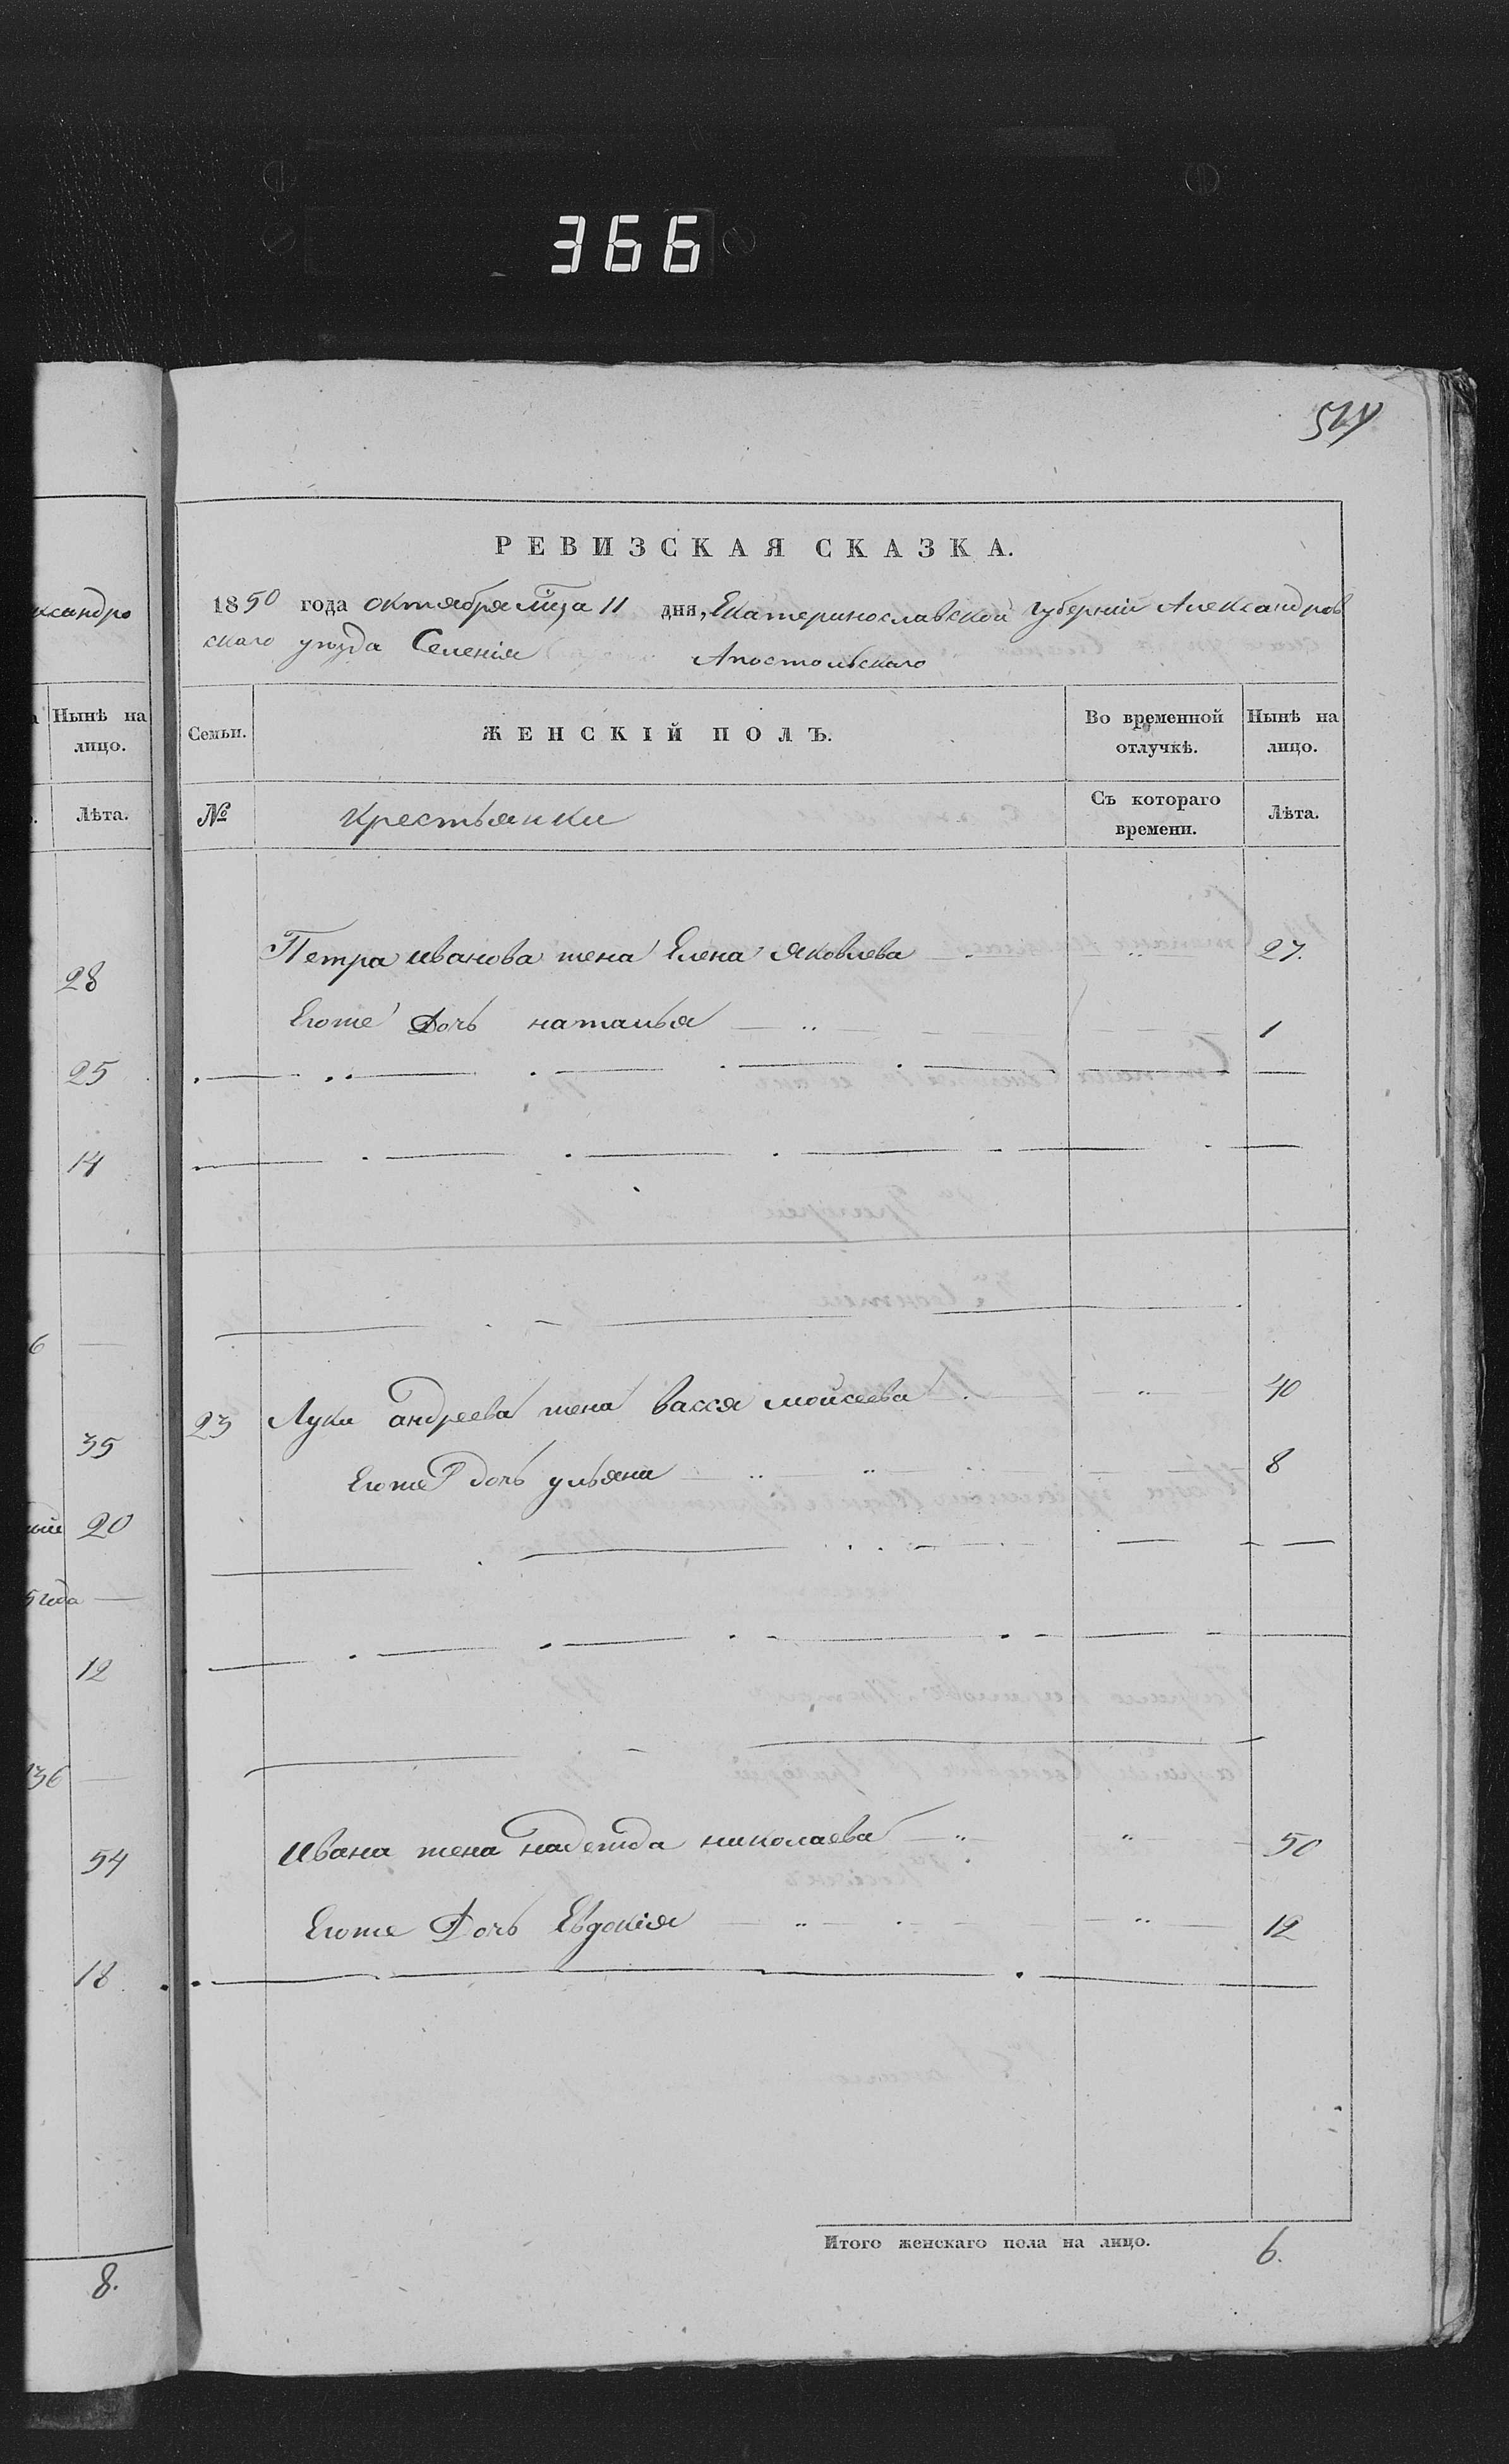 366
РЕВИЗСКАЯ СКАЗКА.
1850 года октября мца 11 дня, Екатеринославской Губерніи Александров
скаго уезда Селенія Апостольскаго
Семьи. ЖЕНСКІЙ ПОЛЪ. Во временной отлучкѣ. Нынѣ на лицо.
№ Крестьянки Съ котораго времени. Лѣта.
Петра иванова жена Елена яковлева " 27.
Егоже Дочь наталья " 1
23 Луки андреева жена васся мойсеева " 40
Егоже дочь ульяна " " 8
Ивана жена надежда николаева " " 50
Егоже Дочь Евдокія " " 12
Итого женскаго пола на лицо. 6.
ксандро
Нынѣ на
лицо.
Лѣта.
28
25
14
6
35
20
5 года
12
36
54
18
8.